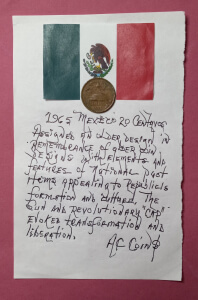 1965 Mexico 20 Centavos
Assigned an older design in
Remembrance of older coin
Designs with elements and
features of National past
Items appealing to Republics
formation and culture, The
Sun and Revolutionary "Cap"
Evoked transformation and
liberation.
AC Coins